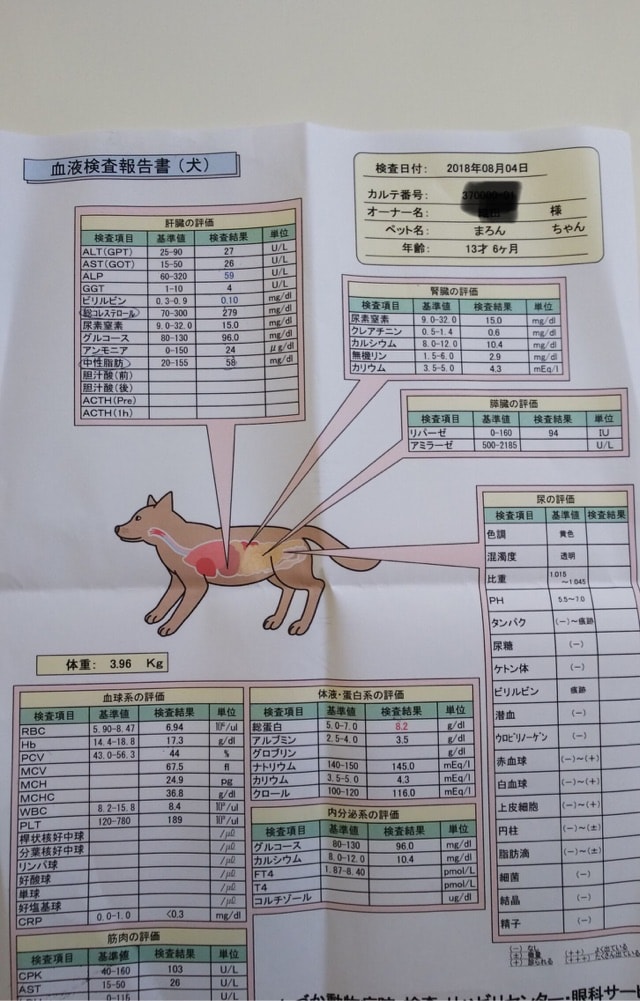 血液検査報告書(犬)
検査日付: 2018年08月04日
カルテ番号:
オーナー名: 様
ペット名: まろん ちゃん
年齢: 13才 6ヶ月
肝臓の評価
検査項目 基準値 検査結果 単位
ALT(GPT) 25-90 27 U/L
AST(GOT) 15-50 26 U/L
ALP 60-320 59 U/L
GGT 1-10 4 U/L
ビリルビン 0.3-0.9 0.10 mg/dl
総コレステロール 70-300 279 mg/dl
尿素窒素 9.0-32.0 15.0 mg/dl
グルコース 80-130 96.0 mg/dl
アンモニア 0-150 24 μg/dl
中性脂肪 20-155 58 mg/dl
胆汁酸(前)
胆汁酸(後)
ACTH(Pre)
ACTH(1h)
腎臓の評価
検査項目 基準値 検査結果 単位
尿素窒素 9.0-32.0 15.0 mg/dl
クレアチニン 0.5-1.4 0.6 mg/dl
カルシウム 8.0-12.0 10.4 mg/dl
無機リン 1.5-6.0 2.9 mg/dl
カリウム 3.5-5.0 4.3 mEq/l
膵臓の評価
検査項目 基準値 検査結果 単位
リパーゼ 0-160 94 IU
アミラーゼ 500-2185 U/L
尿の評価
検査項目 基準値 検査結果
色調 黄色
混濁度 透明
比重 1.015~1.045
PH 5.5~7.0
タンパク (-)~痕跡
尿糖 (-)
ケトン体 (-)
ビリルビン 痕跡
潜血 (-)
ウロビリノーゲン (-)
赤血球 (-)~(+)
白血球 (-)~(+)
上皮細胞 (-)~(+)
円柱 (-)~(±)
脂肪滴 (-)~(±)
細菌 (-)
結晶 (-)
精子 (-)
(-) なし (++) よく出ている
(±) 微量 (+++) たくさん出ている
(+) 認められる
体重: 3.96 Kg
血球系の評価
検査項目 基準値 検査結果 単位
RBC 5.90-8.47 6.94 10⁶/ul
Hb 14.4-18.8 17.3 g/dl
PCV 43.0-56.3 44 %
MCV 67.5 fl
MCH 24.9 pg
MCHC 36.8 g/dl
WBC 8.2-15.8 8.4 10³/ul
PLT 120-780 189 10³/ul
桿状核好中球 /μl
分葉核好中球 /μl
リンパ球 /μl
好酸球 /μl
単球 /μl
好塩基球 /μl
CRP 0.0-1.0 <0.3 mg/dl
体液・蛋白系の評価
検査項目 基準値 検査結果 単位
総蛋白 5.0-7.0 8.2 g/dl
アルブミン 2.5-4.0 3.5 g/dl
グロブリン g/dl
ナトリウム 140-150 145.0 mEq/l
カリウム 3.5-5.0 4.3 mEq/l
クロール 100-120 116.0 mEq/l
内分泌系の評価
検査項目 基準値 検査結果 単位
グルコース 80-130 96.0 mg/dl
カルシウム 8.0-12.0 10.4 mg/dl
FT4 1.87-8.40 pmol/L
T4 pmol/L
コルチゾール ug/dl
筋肉の評価
検査項目 基準値 検査結果 単位
CPK 40-160 103 U/L
AST 15-50 26 U/L
0-115 U/L